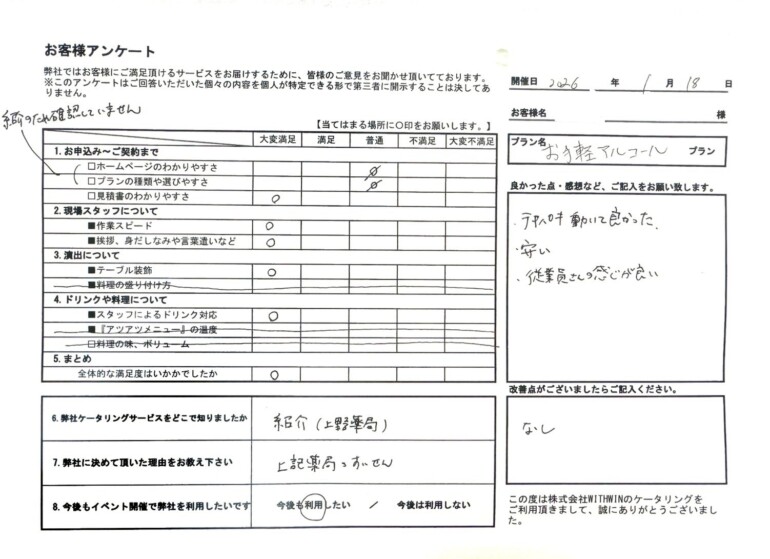 お客様アンケート
弊社ではお客様にご満足頂けるサービスをお届けするために、皆様のご意見をお聞かせ頂いております。
※このアンケートはご回答いただいた個々の内容を個人が特定できる形で第三者に開示することは決してありません。
紹介のため確認していません
【当てはまる場所に〇印をお願いします。】
大変満足 満足 普通 不満足 大変不満足
1.お申込み～ご契約まで
□ホームページのわかりやすさ
□プランの種類や選びやすさ
□見積書のわかりやすさ ○
2.現場スタッフについて
■作業スピード ○
■挨拶、身だしなみや言葉遣いなど ○
3.演出について
■テーブル装飾 ○
■料理の盛り付け方
4.ドリンクや料理について
■スタッフによるドリンク対応 ○
■『アツアツメニュー』の温度
□料理の味、ボリューム
5.まとめ
全体的な満足度はいかかでしたか ○
6.弊社ケータリングサービスをどこで知りましたか 紹介(上野薬局)
7.弊社に決めて頂いた理由をお教え下さい 上記薬局のすいせん
8.今後もイベント開催で弊社を利用したいです 今後も利用したい / 今後は利用しない
開催日 2026 年 1 月 18 日
お客様名 様
プラン名 お手軽アルコール プラン
良かった点・感想など、ご記入をお願い致します。
・テキパキ動いて良かった。
・安い
・従業員さんの感じが良い
改善点がございましたらご記入ください。
なし
この度は株式会社WITHWINのケータリングを
ご利用頂きまして、誠にありがとうございました。